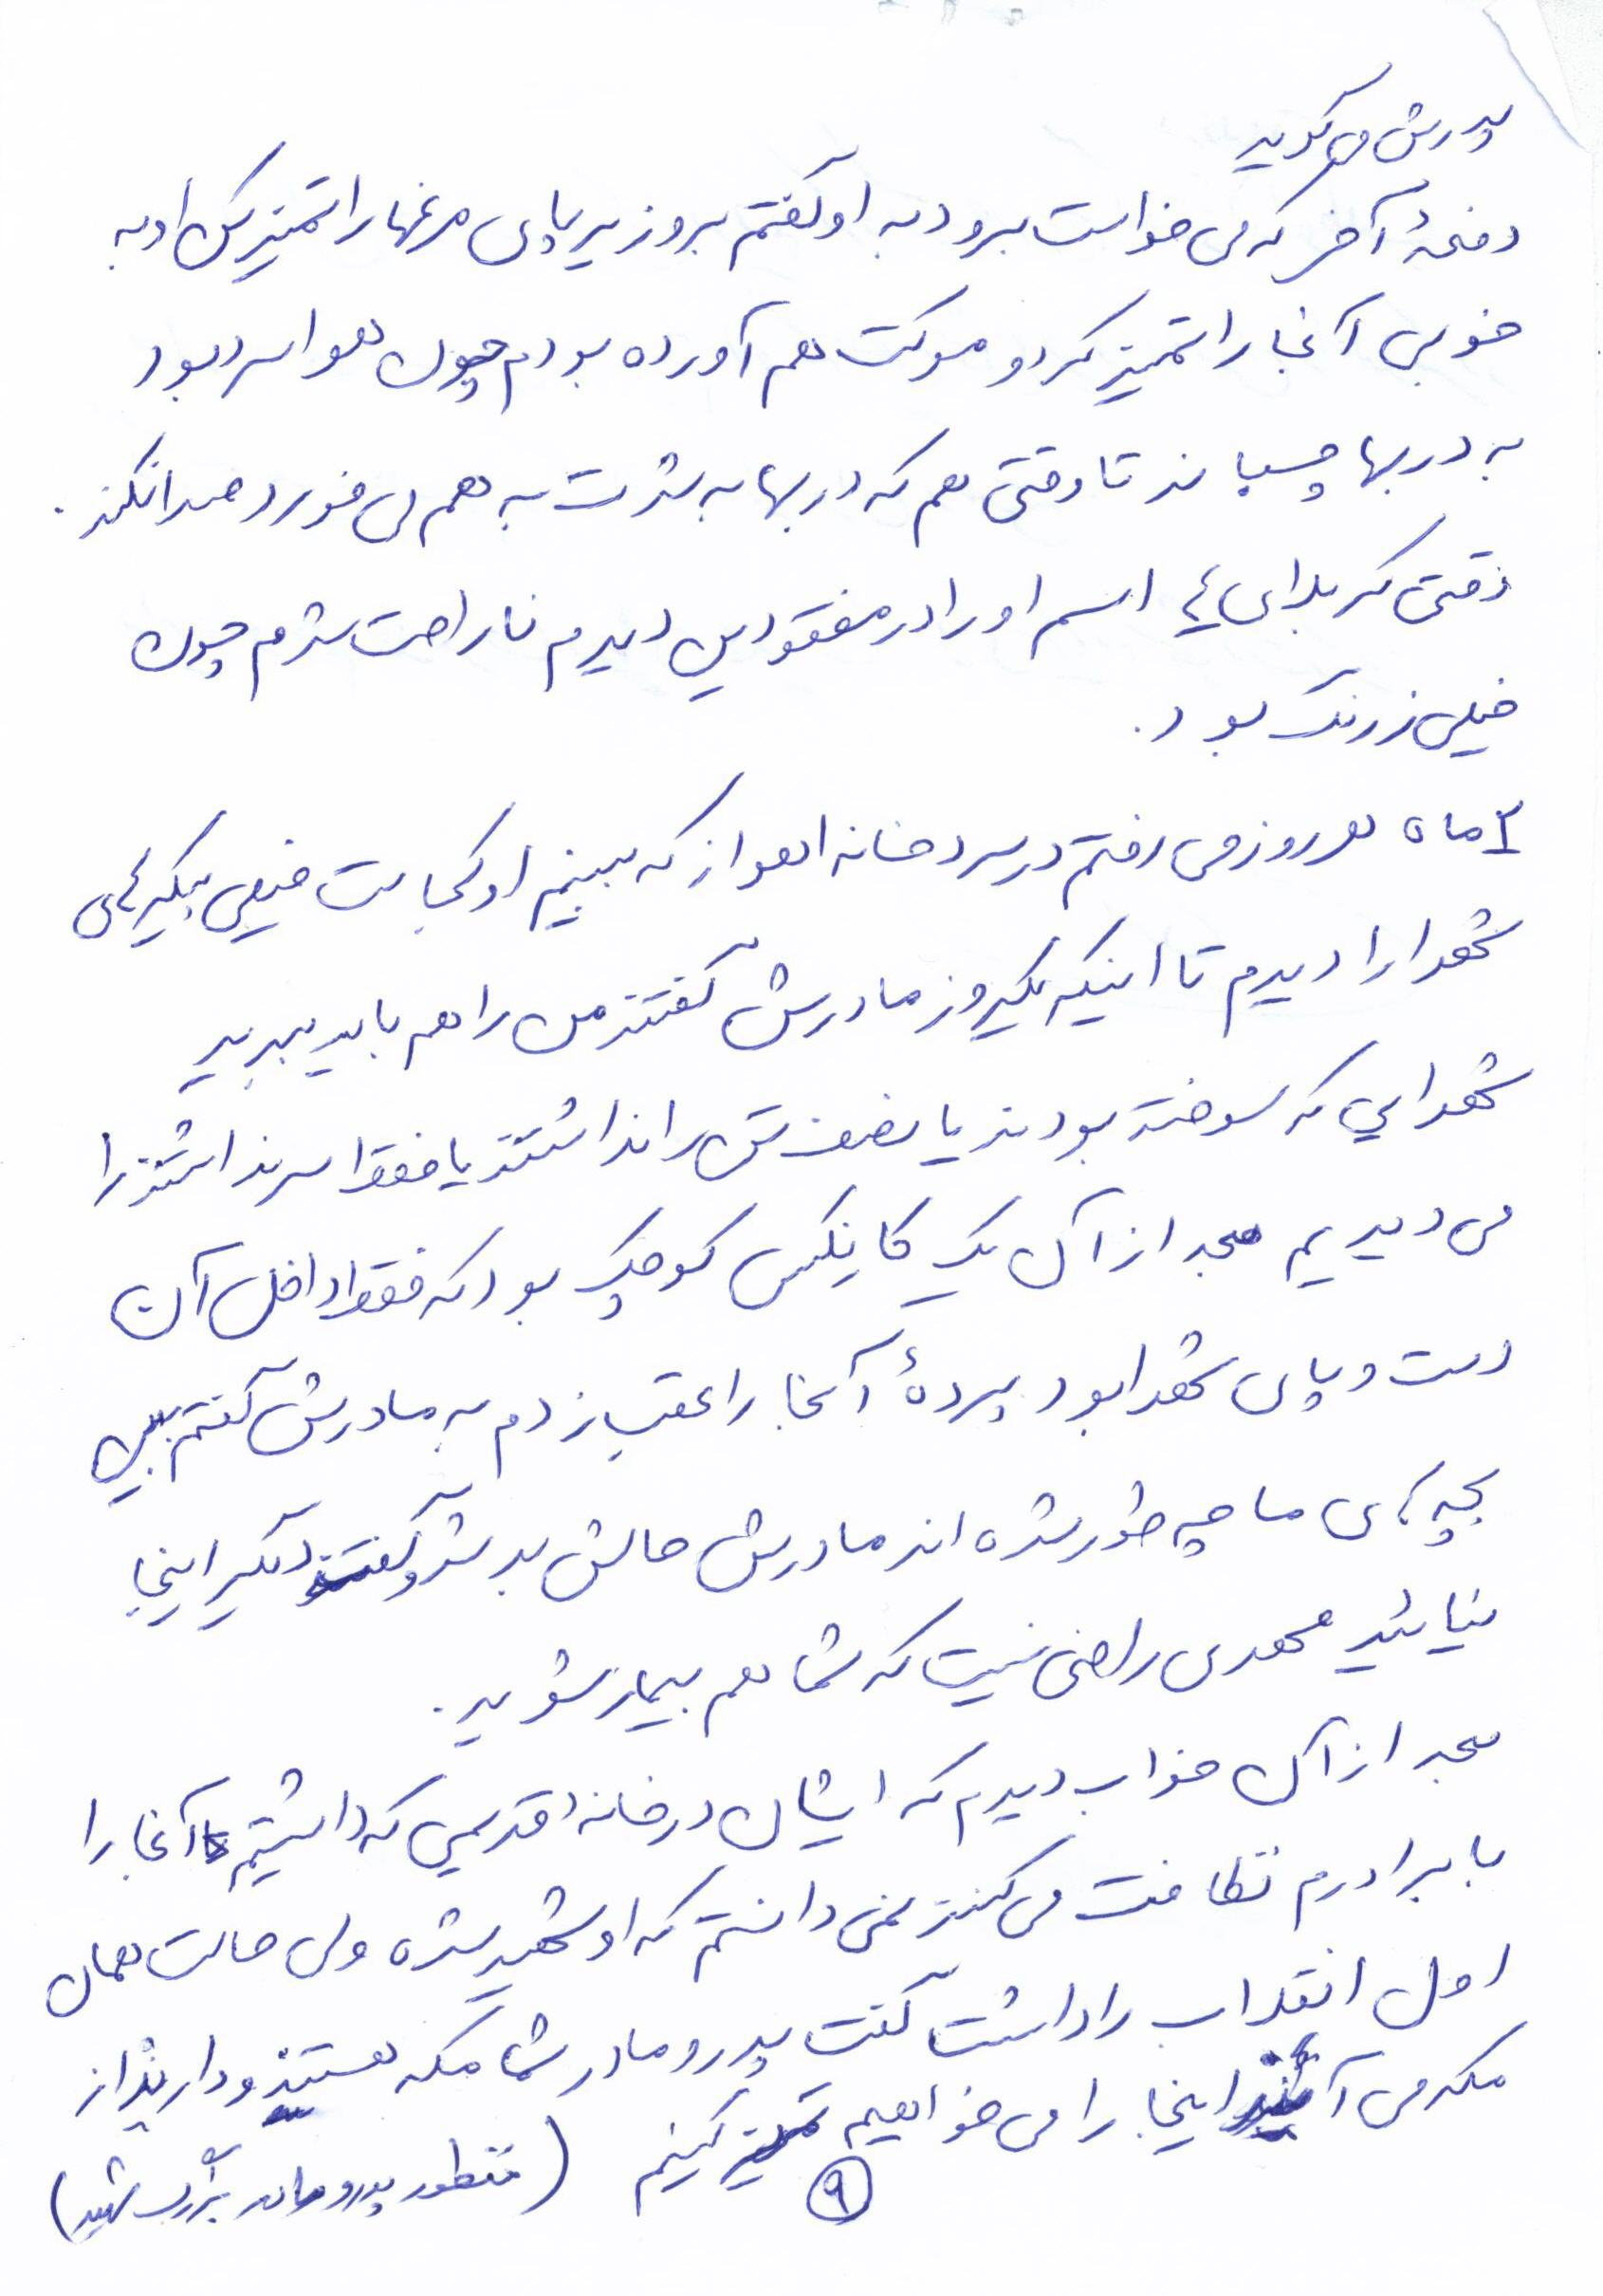 پدرش می گوید
دفعهٔ آخر که می خواست برود به او گفتم برو زیر پای مرغها را تمیز کن او به
خوبی آنجا را تمیز کرد و موکت هم آورده بودم چون هوا سرد بود
به دربها چسباند تا وقتی هم که دربها به شدت به هم می خورد صدا نکند.
وقتی کربلای ٤ اسم او را در مفقودین دیدم ناراحت شدم چون
خیلی زرنگ بود.
ماه هر روز می رفتم در سردخانه اهواز که ببینم او کجاست خیلی پیکرهای
شهدا را دیدم تا اینکه یکروز مادرش گفتند من را هم باید ببرید
شهدایی که سوخته بودند یا نصف تن را نداشتند یا فقط سر نداشتند را
می دیدیم بعد از آن یک کانکس کوچک بود که فقط داخل آن
دست و پای شهدا بود پردهٔ آنجا را عقب زدم به مادرش گفتم ببین
بچه های ما چه طور شده اند مادرش حالش بد شد و گفتند دیگر اینجا
نیائید مهدی راضی نیست که شما هم بیمار شوید.
بعد از آن خواب دیدم که ایشان در خانه قدیمی که داشتیم آنجا را
با برادرم نظافت می کنند نمی دانستم که او شهید شده ولی حالت همان
اول انقلاب را داشت گفت پدر و مادر شما مکه هستند و دارند از
مکه می آیند اینجا را می خواهیم تمیز کنیم (منظور پدر و مادر بزرگ شهید)
۹